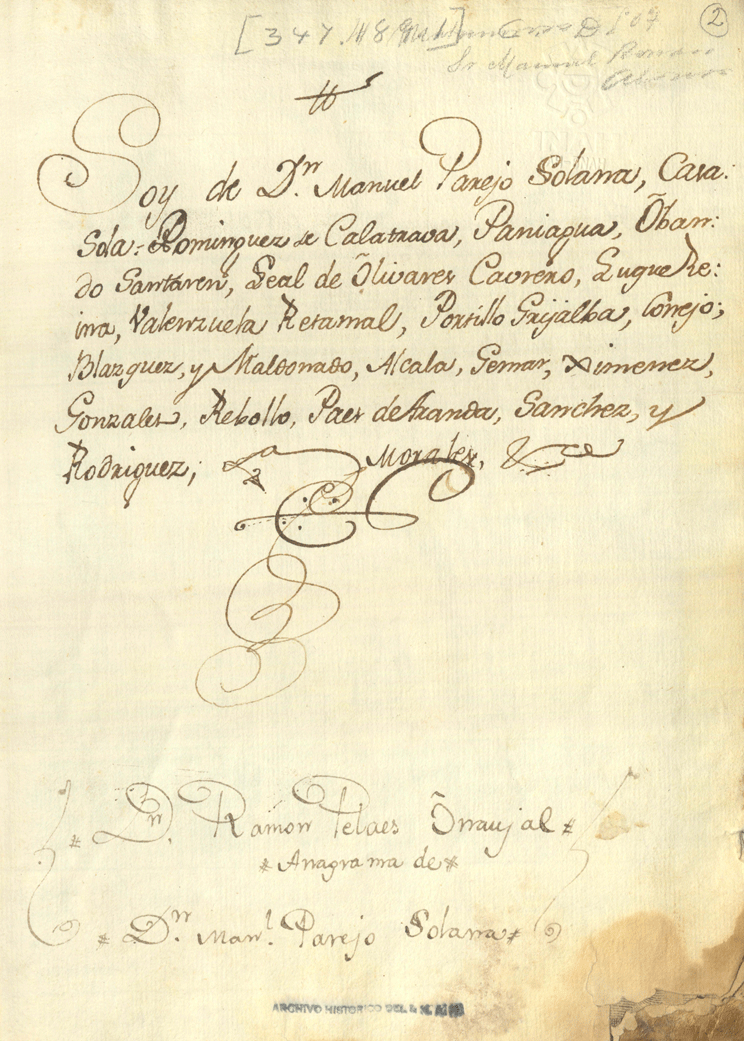 2
Sr Manuel
Soy de Dn. Manuel Parejo Solana, Casa:
Sola: Dominguez de Calatrava, Paniagua, Õban:
do Santaren, Leal de Õlivares Cavrero, Luque Re:
ina, Valenzuela Retamal, Portillo Grijalba, Conejo;
Blazquez, y Maldonado, Alcala, Gemar, Ximenez,
Gonzales, Rebollo, Paes de Aranda, Sanchez, y
Rodriguez; Morales,
* Dn. Ramon Pelaes Õnaujal *
* Anagrama de *
* Dn. Manl. Parejo Solana *
ARCHIVO HISTORICO DEL